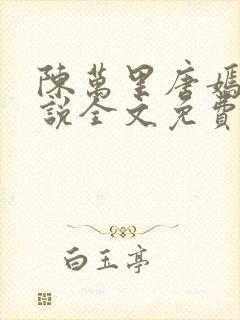 陳萬里唐嫣
說全文免費
白玉亭